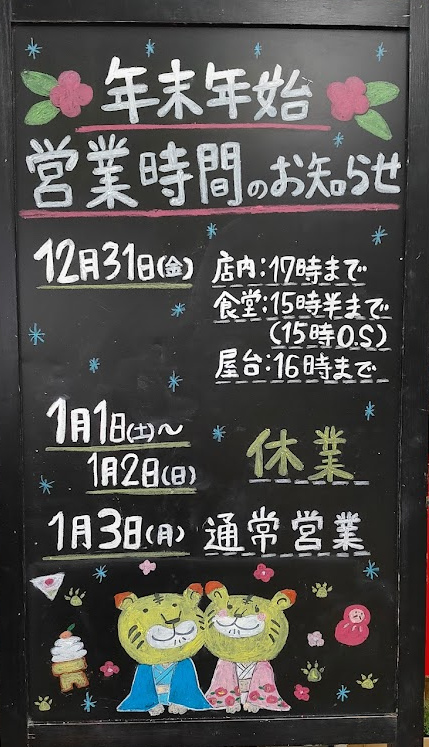 年末年始
営業時間のお知らせ
12月31日(金) 店内:17時まで
食堂:15時半まで
(15時O.S)
屋台:16時まで
1月1日(土)~
1月2日(日) 休業
1月3日(月) 通常営業